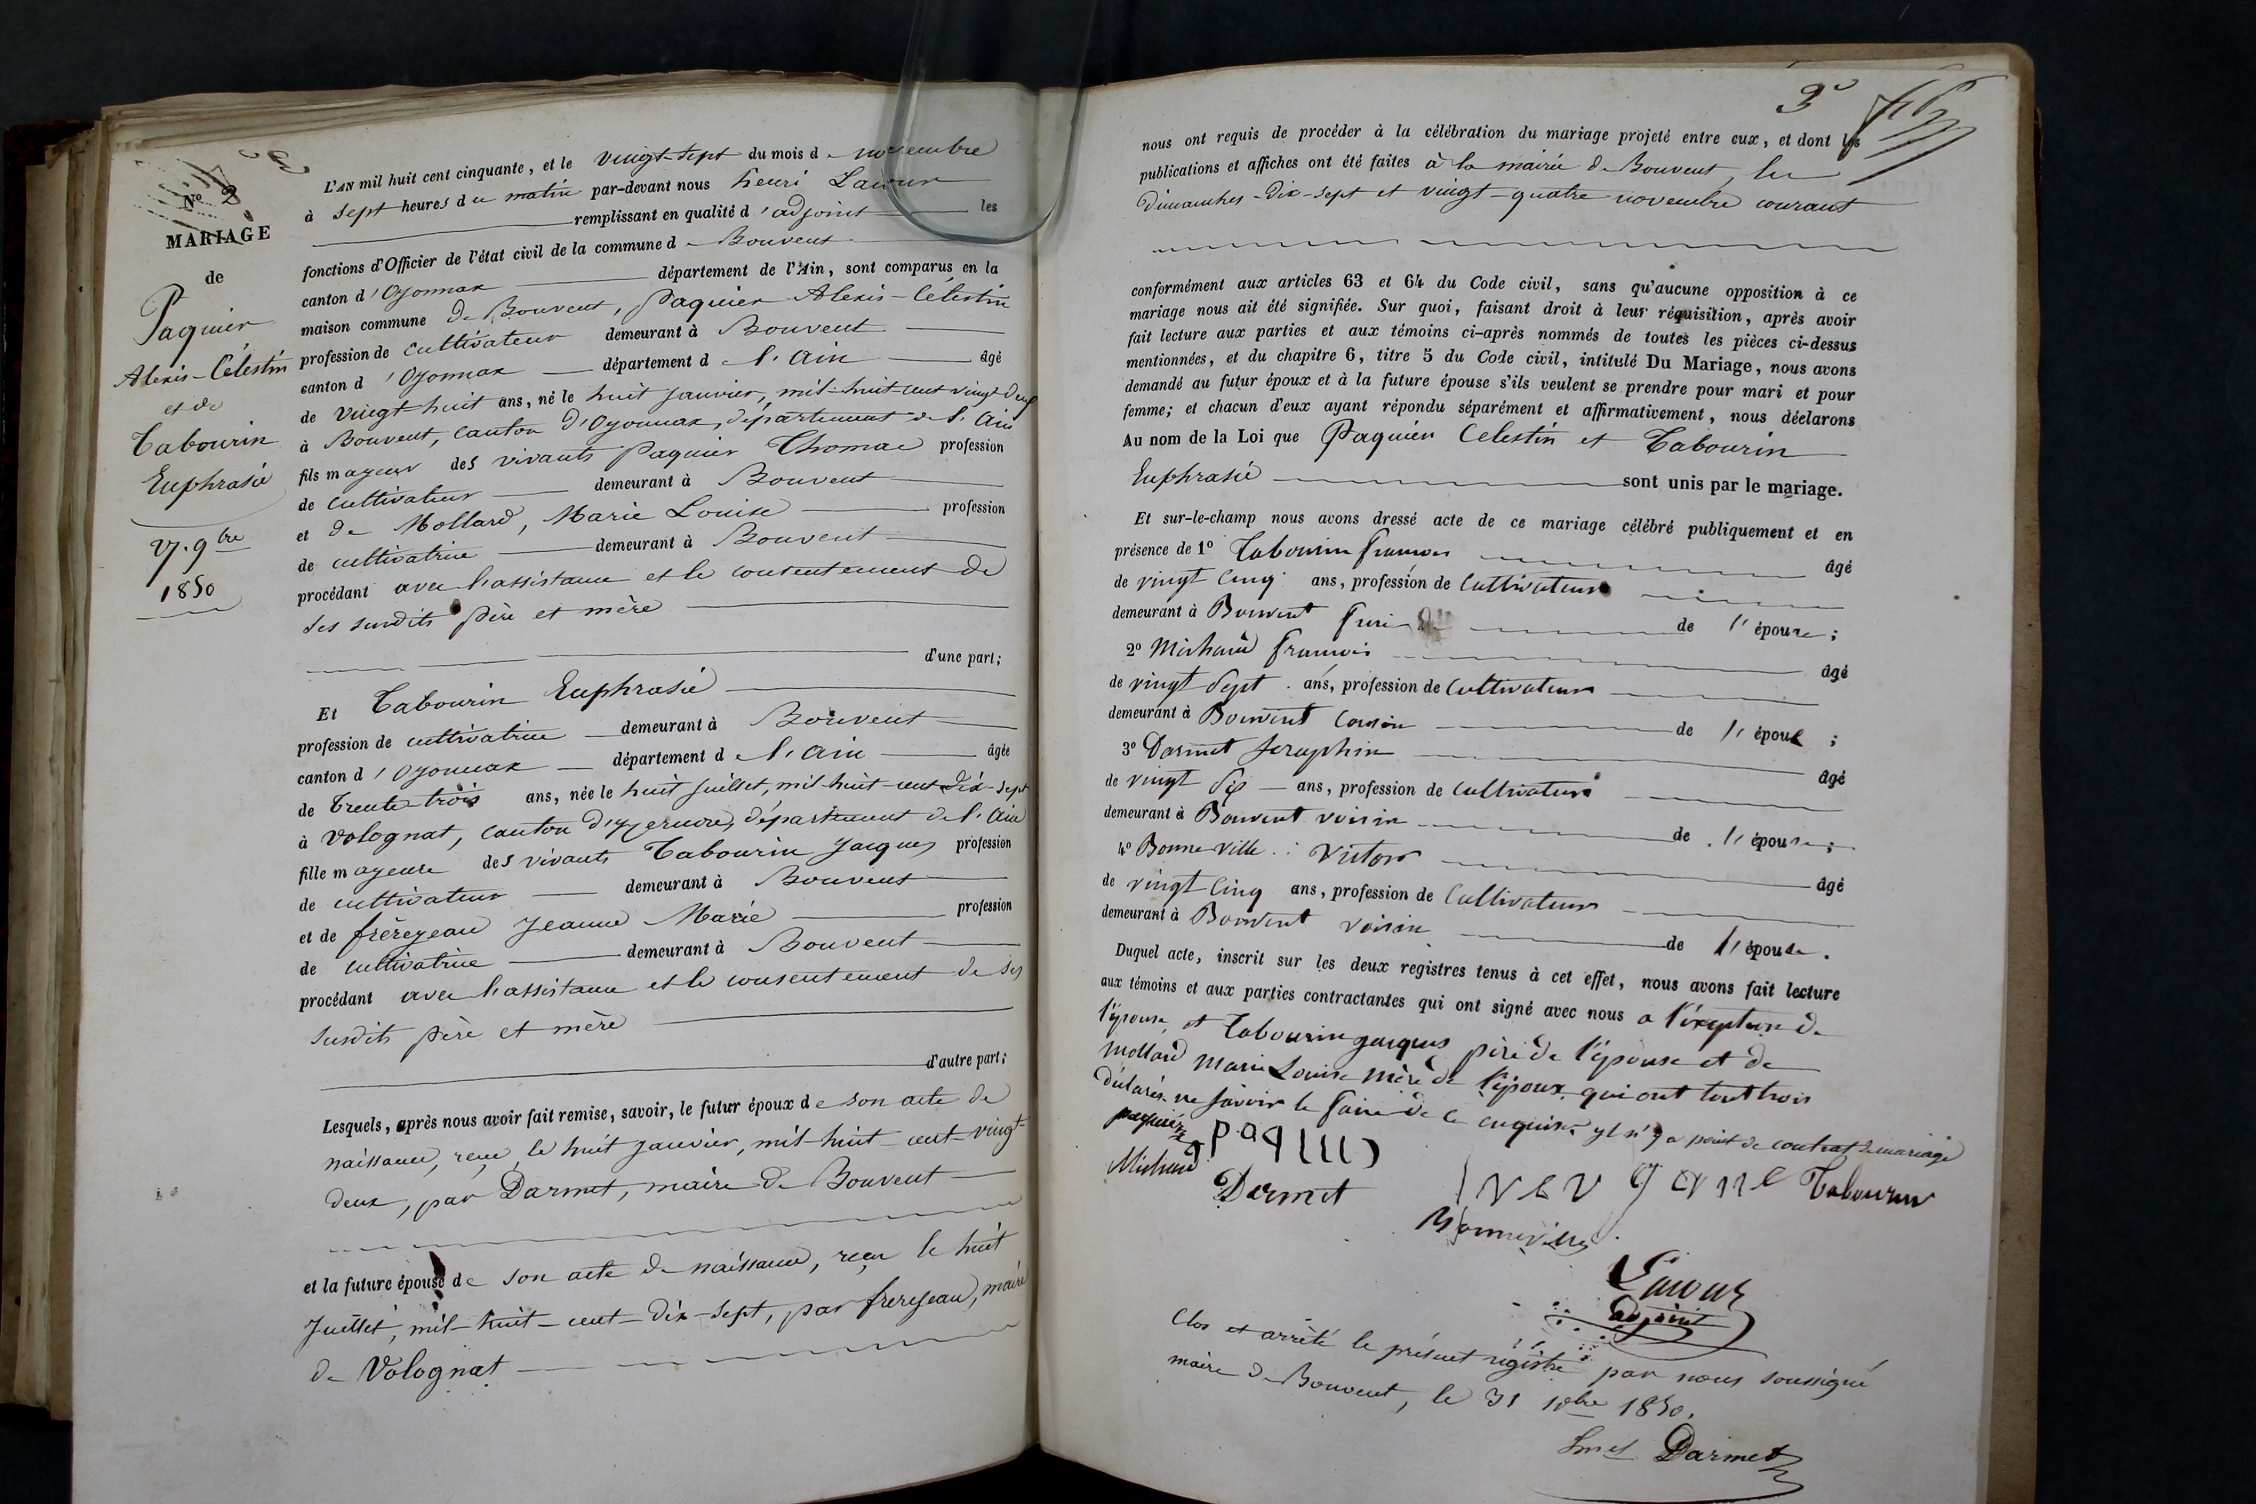 Nº 2
MARIAGE
de
Paquier
Alexis-Célestin
et de
Tabourin
Euphrasie
27. 9bre
1850
L'AN mil huit cent cinquante, et le vingt-sept du mois de novembre
à sept heures du matin par-devant nous henri Lacour
remplissant en qualité d'adjoint les
fonctions d'Officier de l'état civil de la commune de Bouvent
canton d'Oyonnax département de l'Ain, sont comparus en la
maison commune de Bouvent, Paquier Alexis-Célestin
profession de cultivateur demeurant à Bouvent
canton d'Oyonnax département de l'Ain âgé
de vingt-huit ans, né le huit janvier, mil-huit-cent vingt-deux
à Bouvent, canton d'Oyonnax, département de l'Ain
fils mageur des vivants Paquier Thomas profession
de cultivateur demeurant à Bouvent
et de Mollard, Marie Louise profession
de cultivatrice demeurant à Bouvent
procédant avec l'assistance et le consentement de
ses susdits père et mère
d'une part;
Et Tabourin Euphrasie
profession de cultivatrice demeurant à Bouvent
canton d'Oyonnax département de l'Ain âgée
de trente-trois ans, née le huit juillet, mil-huit-cent-dix-sept
à Volognat, canton d'Yzernore, département de l'Ain
fille mageure des vivants Tabourin Jacques profession
de cultivateur demeurant à Bouvent
et de frèrejean Jeanne Marie profession
de cultivatrice demeurant à Bouvent
procédant avec l'assistance et le consentement de ses
susdits père et mère
d'autre part;
Lesquels, après nous avoir fait remise, savoir, le futur époux de son acte de
naissance, reçu le huit janvier, mil-huit-cent-vingt-
deux, par Darmet, maire de Bouvent
et la future épouse de son acte de naissance, reçu le huit
juillet, mil-huit-cent-dix-sept, par frerejean, maire
de Volognat
3
nous ont requis de procéder à la célébration du mariage projeté entre eux, et dont les
publications et affiches ont été faites à la mairie de Bouvent, les
dimanches dix-sept et vingt-quatre novembre courant
conformément aux articles 63 et 64 du Code civil, sans qu'aucune opposition à ce
mariage nous ait été signifiée. Sur quoi, faisant droit à leur réquisition, après avoir
fait lecture aux parties et aux témoins ci-après nommés de toutes les pièces ci-dessus
mentionnées, et du chapitre 6, titre 5 du Code civil, intitulé Du Mariage, nous avons
demandé au futur époux et à la future épouse s'ils veulent se prendre pour mari et pour
femme; et chacun d'eux ayant répondu séparément et affirmativement, nous déclarons
Au nom de la Loi que Paquier Celestin et Tabourin
Euphrasie sont unis par le mariage.
Et sur-le-champ nous avons dressé acte de ce mariage célébré publiquement et en
présence de 1º Tabourin françois âgé
de vingt cinq ans, profession de Cultivateur
demeurant à Bouvent de l'épouse;
2º Michaud françois âgé
de vingt sept ans, profession de Cultivateur
demeurant à Bouvent Cousin de l'époux;
3º Darmet Seraphin âgé
de vingt six ans, profession de Cultivateur
demeurant à Bouvent voisin de l'épouse;
4º Bonneville Victor âgé
de vingt Cinq ans, profession de Cultivateur
demeurant à Bouvent voisin de l'épouse.
Duquel acte, inscrit sur les deux registres tenus à cet effet, nous avons fait lecture
aux témoins et aux parties contractantes qui ont signé avec nous a l'exeption de
l'épouse, et Tabourin jacques père de l'épouse et de
mollard Marie Louise mère de l'époux qui ont tout trois
déclarés ne savoir le faire de ce enquis. yl n'y a point de contrat de mariage
paquier
Michaud
Darmet
Tabourin
Bonneville
Lacour
adjoint
Clos et arrêté le présent régistre par nous soussigné
maire de Bouvent, le 31 10bre 1850.
Darmet